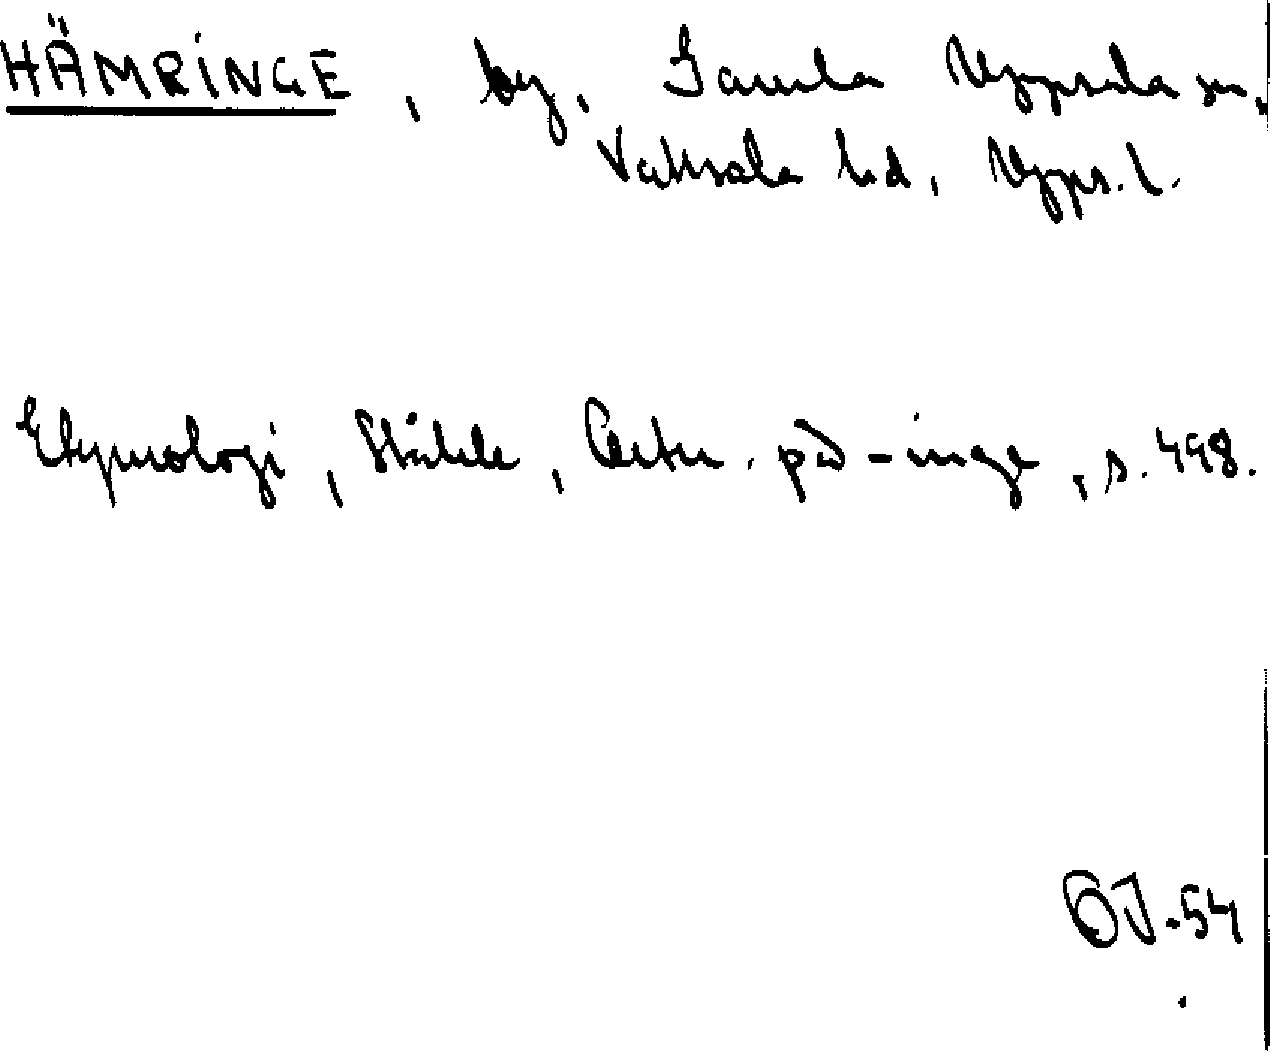 HÄMRINGE, by, Gamla Uppsala sn,
Vaksala hd, Upps. l.
Etymologi, Ståhle, Ortn. på -inge, s. 498.
OJ-54